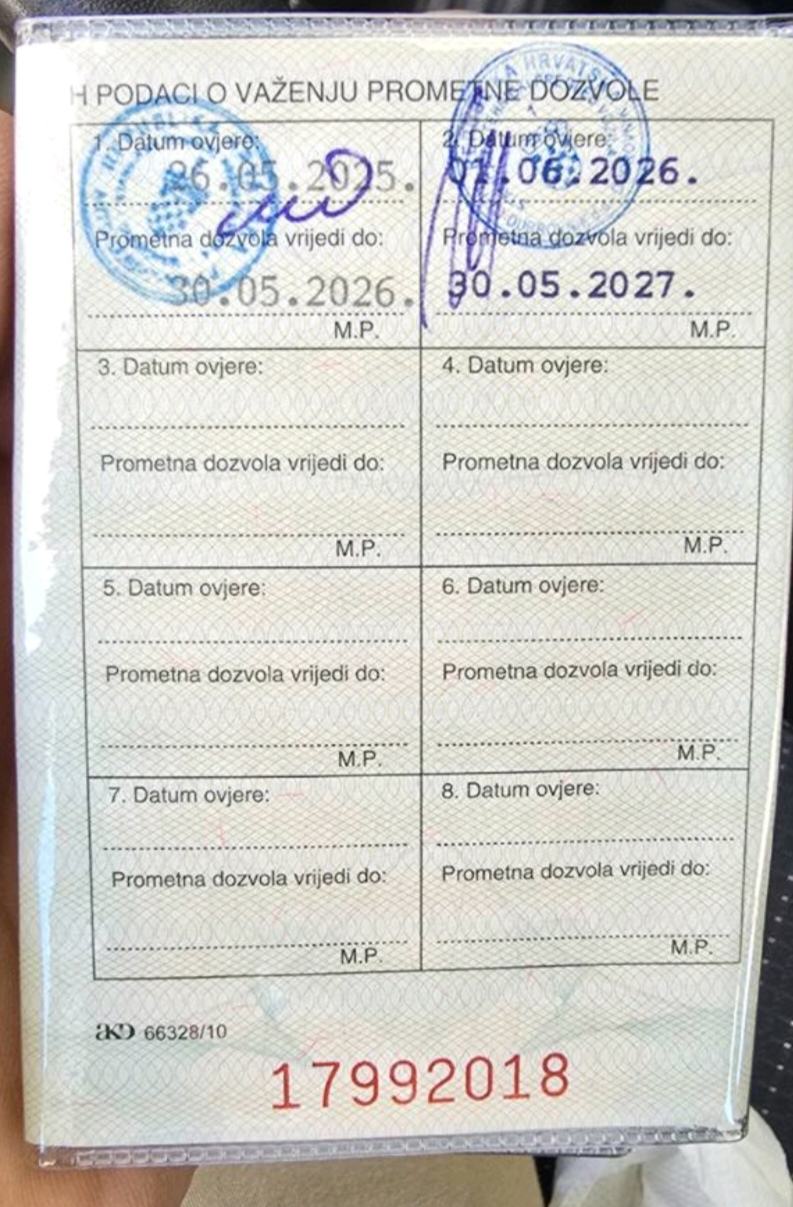 H PODACI O VAŽENJU PROMETNE DOZVOLE
1. Datum ovjere:
26.05.2025.
Prometna dozvola vrijedi do:
30.05.2026.
M.P.
2. Datum ovjere:
01.06.2026.
Prometna dozvola vrijedi do:
30.05.2027.
M.P.
3. Datum ovjere:
Prometna dozvola vrijedi do:
M.P.
4. Datum ovjere:
Prometna dozvola vrijedi do:
M.P.
5. Datum ovjere:
Prometna dozvola vrijedi do:
M.P.
6. Datum ovjere:
Prometna dozvola vrijedi do:
M.P.
7. Datum ovjere:
Prometna dozvola vrijedi do:
M.P.
8. Datum ovjere:
Prometna dozvola vrijedi do:
M.P.
AKD 66328/10
17992018